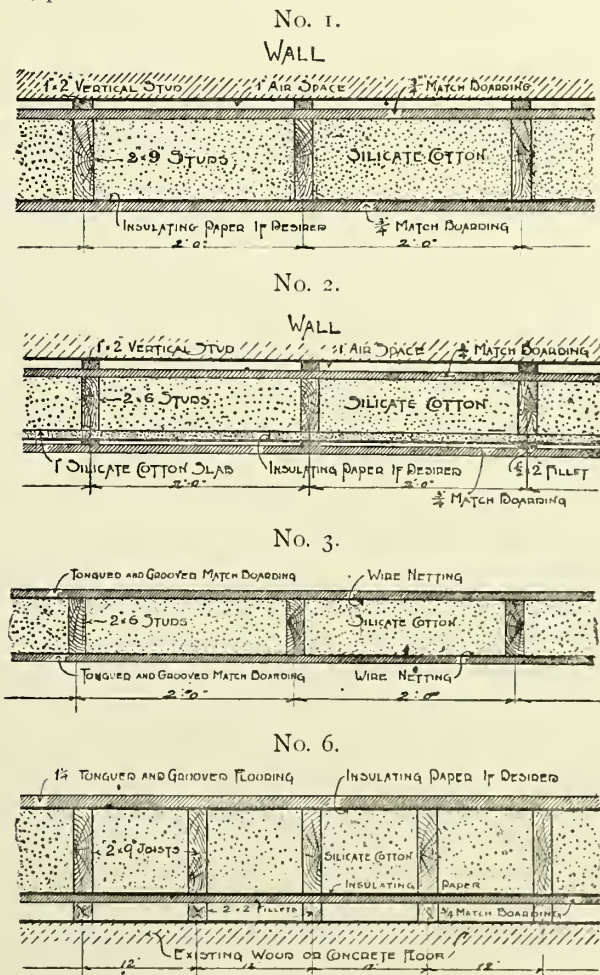 No. 1.
WALL
1"×2" VERTICAL STUD 1" AIR SPACE MATCH BOARDING
2"×9" STUDS SILICATE COTTON
INSULATING PAPER IF DESIRED 3/4" MATCH BOARDING
2'·0" 2'·0"
No. 2.
WALL
1"×2" VERTICAL STUD 1" AIR SPACE 3/4" MATCH BOARDING
2×6 STUDS SILICATE COTTON
1" SILICATE COTTON SLAB INSULATING PAPER IF DESIRED 1/2×2" FILLET
2'·0" 2'·0"
3/4" MATCH BOARDING
No. 3.
TONGUED AND GROOVED MATCH BOARDING WIRE NETTING
2×6 STUDS SILICATE COTTON
TONGUED AND GROOVED MATCH BOARDING WIRE NETTING
2'·0" 2'·0"
No. 6.
1 1/4 TONGUED AND GROOVED FLOORING INSULATING PAPER IF DESIRED
2×9 JOISTS SILICATE COTTON
INSULATING PAPER
2×2 FILLETS 3/4 MATCH BOARDING
EXISTING WOOD OR CONCRETE FLOOR
12" 12"